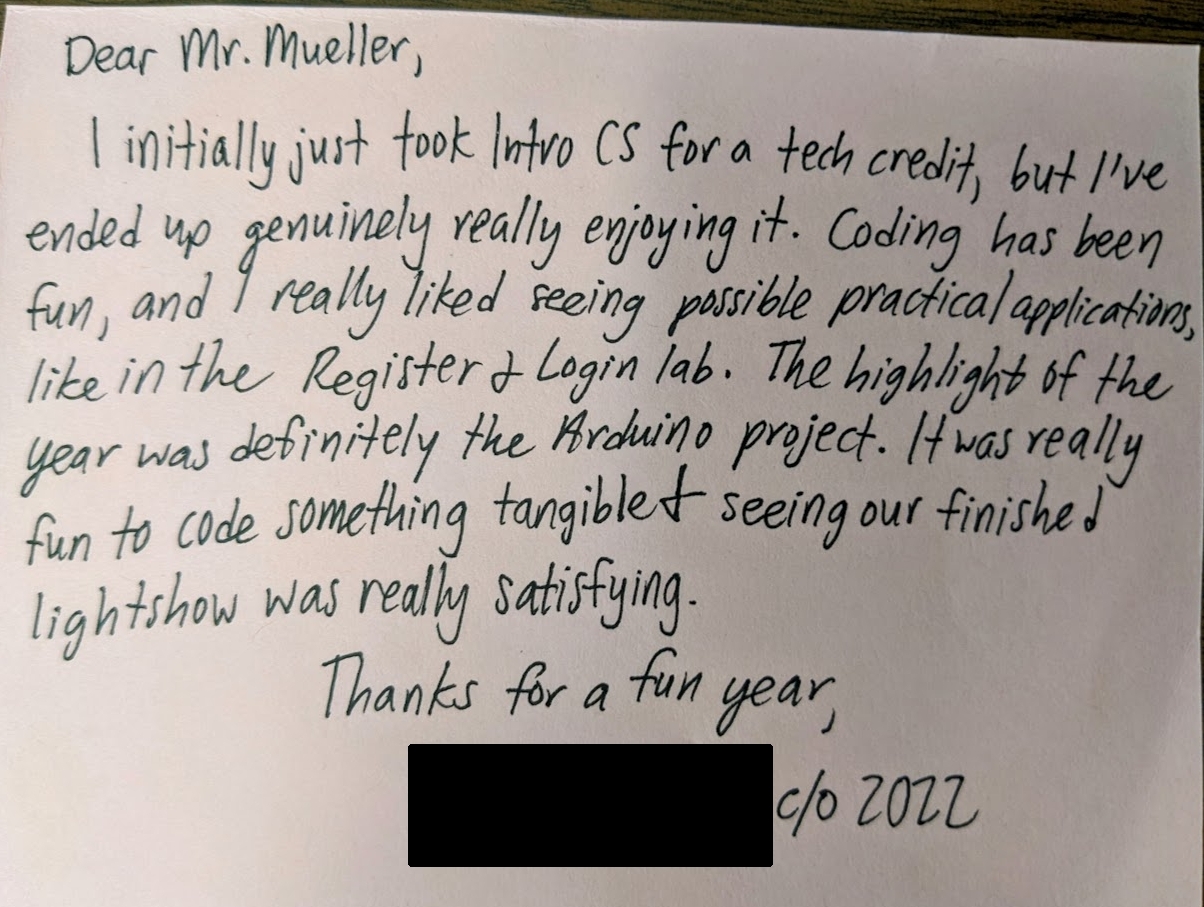 Dear Mr. Mueller,
I initially just took Intro CS for a tech credit, but I've
ended up genuinely really enjoying it. Coding has been
fun, and I really liked seeing possible practical applications,
like in the Register & Login lab. The highlight of the
year was definitely the Arduino project. It was really
fun to code something tangible & seeing our finished
lightshow was really satisfying.
Thanks for a fun year,
c/o 2022